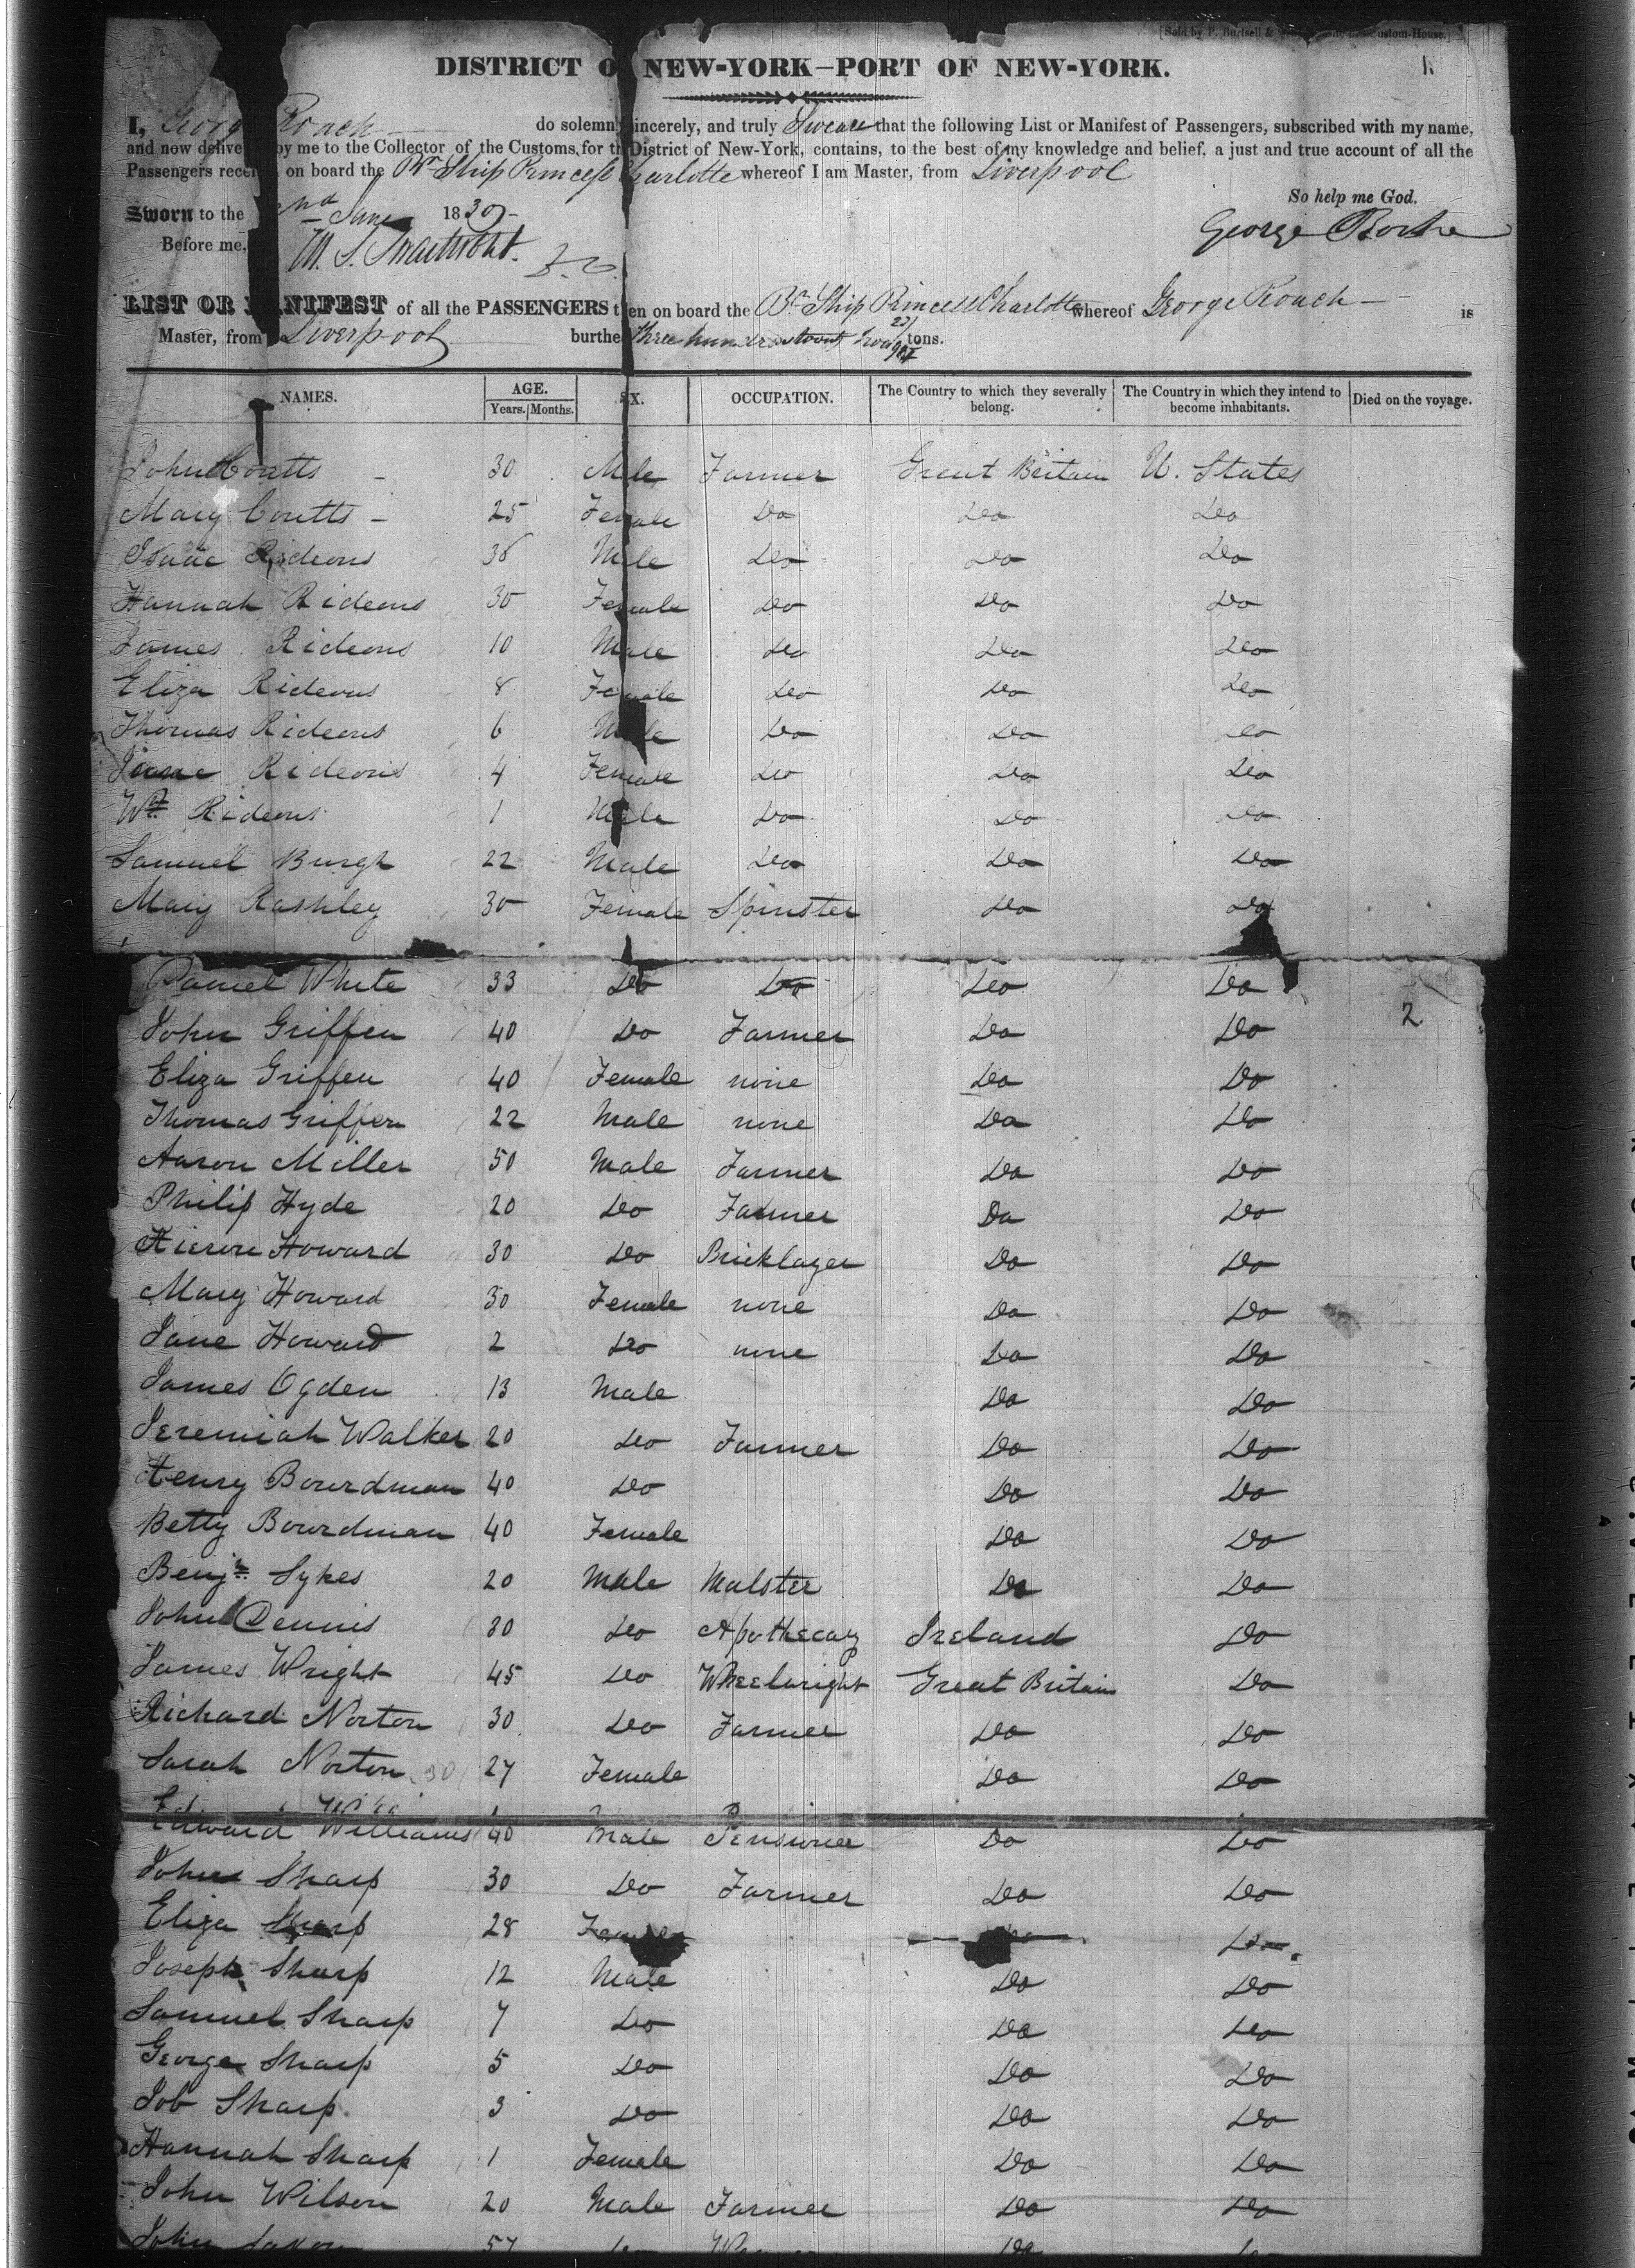 [Sold by P. Burtsell & Custom-House.]
1.
DISTRICT OF NEW-YORK—PORT OF NEW-YORK.
I, George Roach do solemnly, sincerely, and truly Swear that the following List or Manifest of Passengers, subscribed with my name,
and now delivered by me to the Collector of the Customs, for the District of New-York, contains, to the best of my knowledge and belief, a just and true account of all the
Passengers received on board the Br Ship Princess Charlotte whereof I am Master, from Liverpool
So help me God.
Sworn to the 2nd June 1830
George Roche
Before me,
LIST OR MANIFEST of all the PASSENGERS taken on board the Br Ship Princess Charlotte whereof George Roach is
Master, from Liverpool burthen Three hundred twenty two 23/95 tons.
NAMES. AGE. Years. Months. SEX. OCCUPATION. The Country to which they severally belong. The Country in which they intend to become inhabitants. Died on the voyage.
John Coutts 30 Male Farmer Great Britain U. States
Mary Coutts 25 Female Do Do Do
Isaac Rideous 36 Male Do Do Do
Hannah Rideous 30 Female Do Do Do
James Rideous 10 Male Do Do Do
Eliza Rideous 8 Female Do Do Do
Thomas Rideous 6 Male Do Do Do
Jane Rideous 4 Female Do Do Do
Wm Rideous 1 Male Do Do Do
Samuel Burgh 22 Male Do Do Do
Mary Rashley 30 Female Spinster Do Do
Daniel White 33 Do Do Do Do
2
John Griffen 40 Do Farmer Do Do
Eliza Griffen 40 Female none Do Do
Thomas Griffen 22 Male none Do Do
Aaron Miller 50 Male Farmer Do Do
Philip Hyde 20 Do Farmer Do Do
Howard 30 Do Bricklayer Do Do
Mary Howard 30 Female none Do Do
Jane Howard 2 Do none Do Do
James Ogden 13 Male Do Do
Jeremiah Walker 20 Do Farmer Do Do
Henry Bourdman 40 Do Do Do
Betty Bourdman 40 Female Do Do
Benjn Sykes 20 Male Malster Do Do
John Dennis 30 Do Apothecary Ireland Do
James Wright 45 Do Wheelwright Great Britain Do
Richard Norton 30 Do Farmer Do Do
Sarah Norton 30 27 Female Do Do
Edward Williams 40 Male Pensioner Do Do
John Sharp 30 Do Farmer Do Do
Eliza Sharp 28 Female Do Do
Joseph Sharp 12 Male Do Do
Samuel Sharp 7 Do Do Do
George Sharp 5 Do Do Do
Job Sharp 3 Do Do Do
Hannah Sharp 1 Female Do Do
John Wilson 20 Male Farmer Do Do
John Saxon 57 Do Do Do